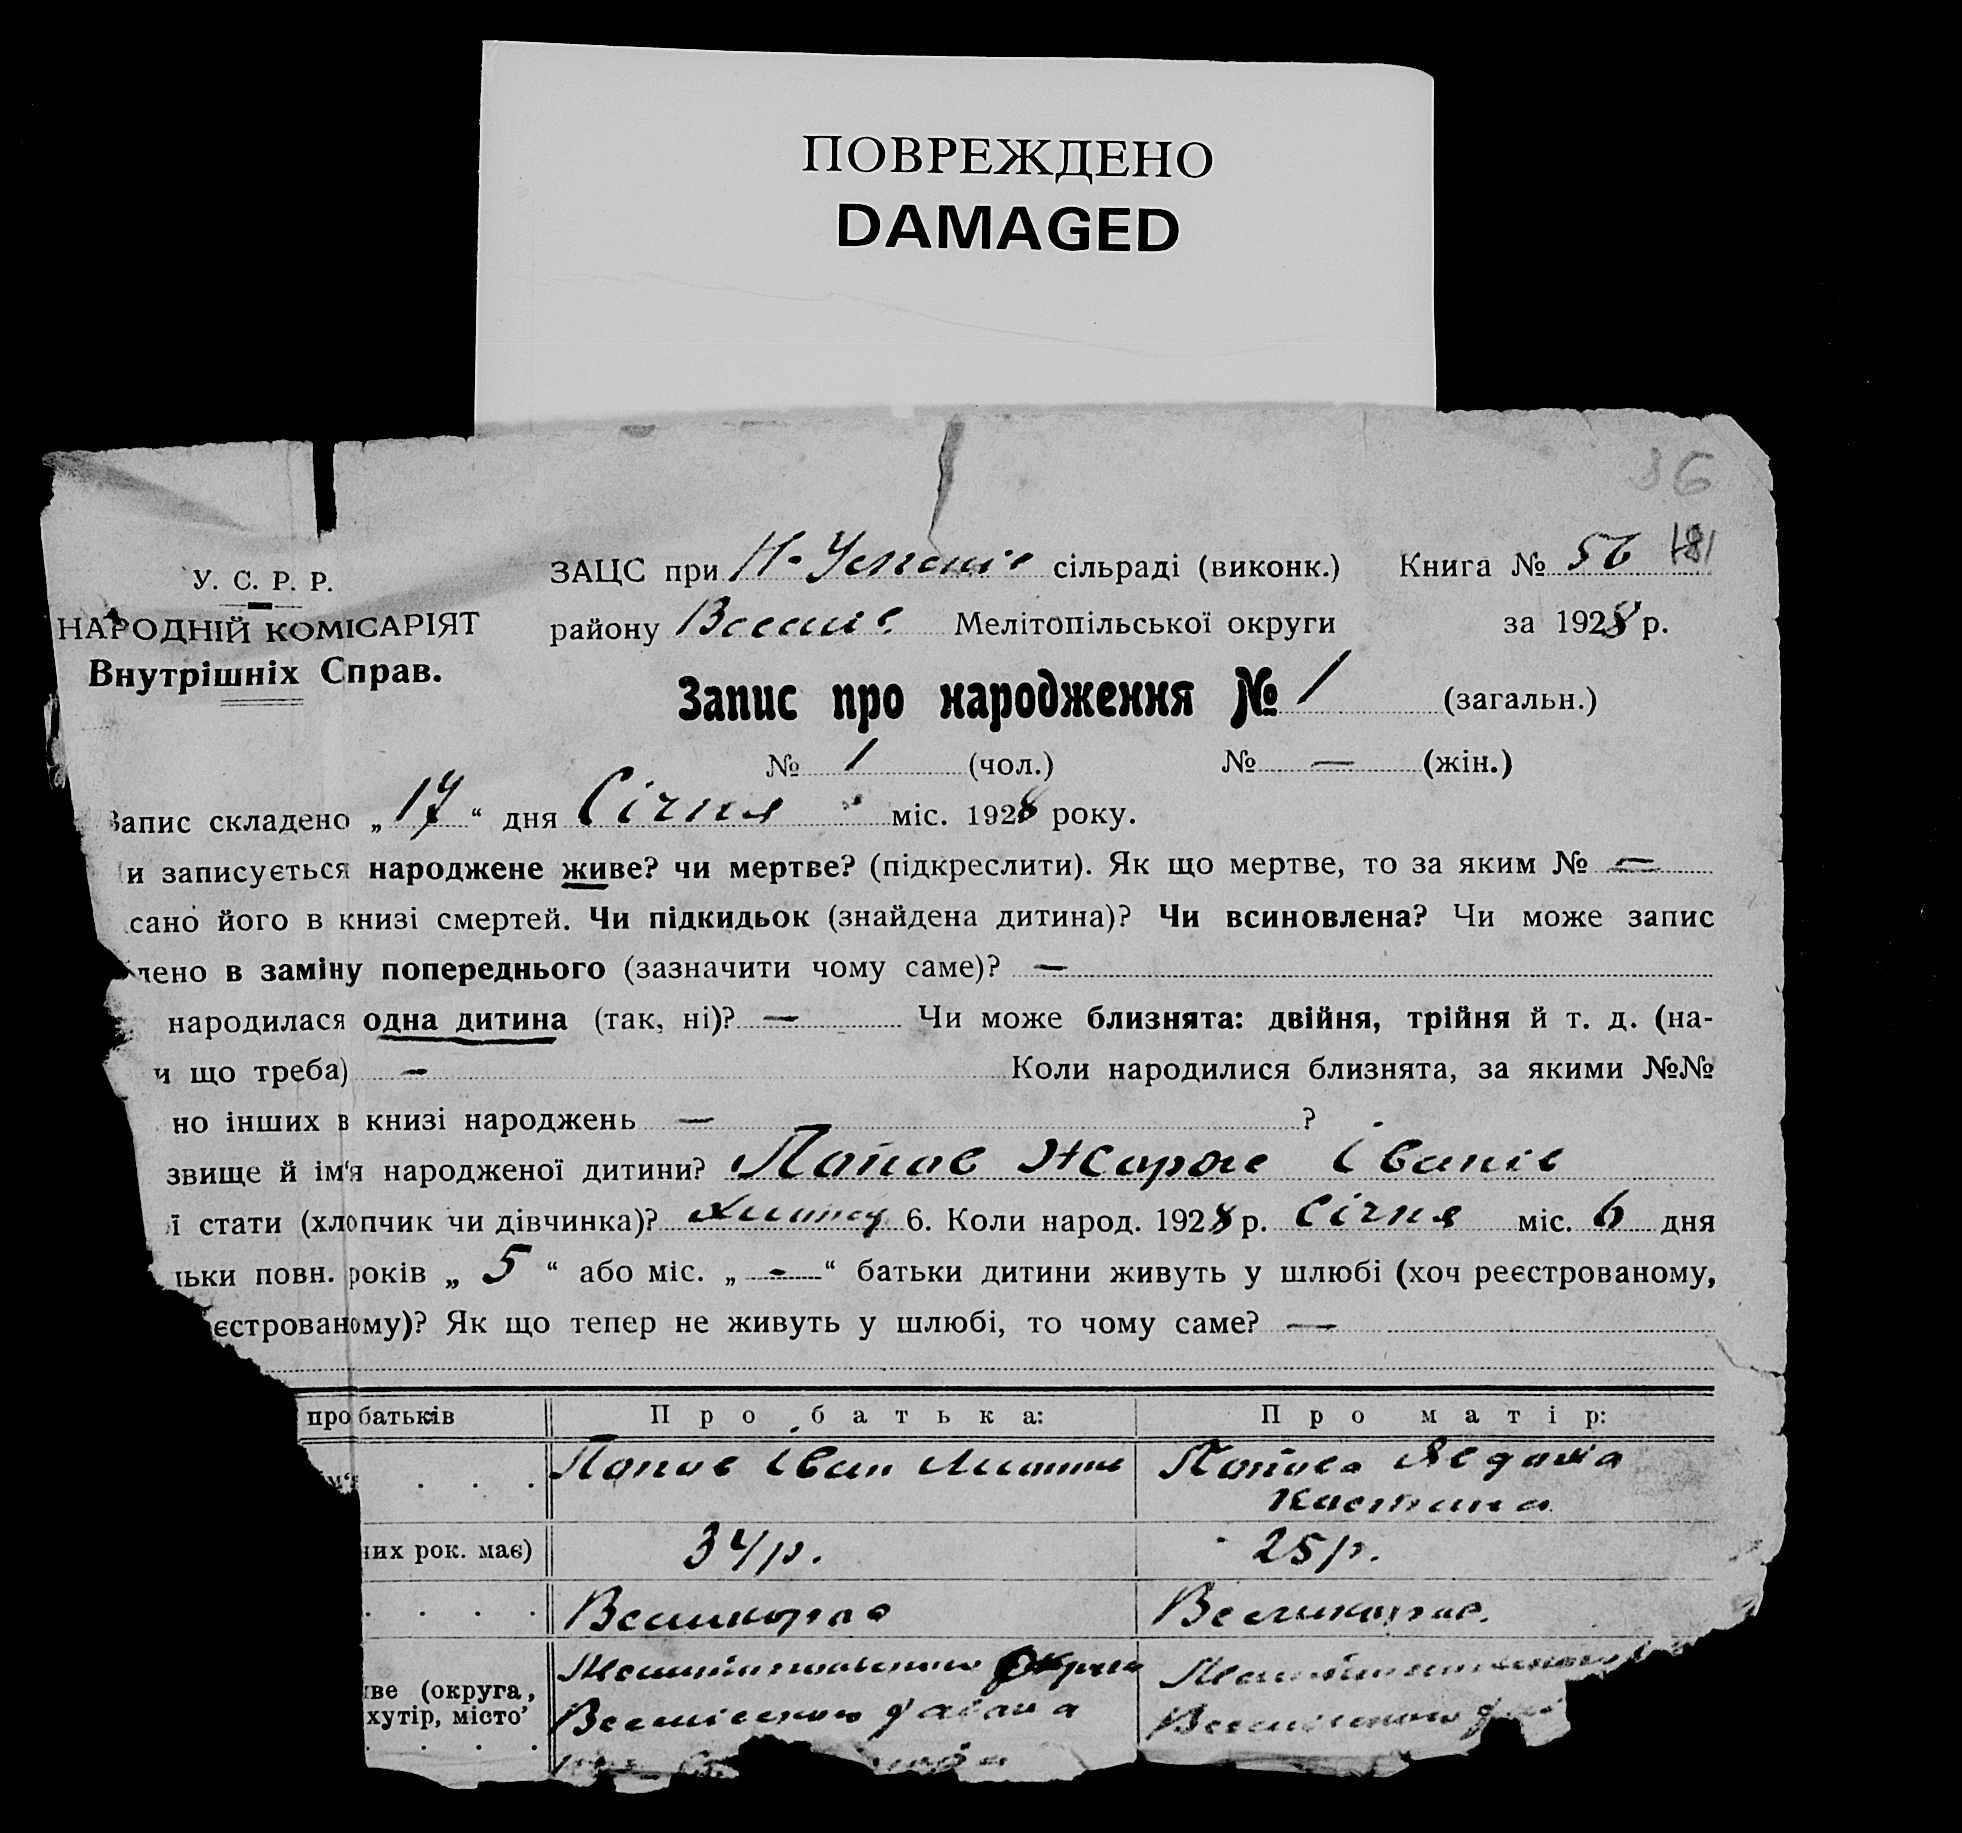 ПОВРЕЖДЕНО
DAMAGED
36
У. С. Р. Р.
НАРОДНІЙ КОМІСАРІЯТ
Внутрішніх Справ.
ЗАЦС при Н-Успенів сільраді (виконк.) Книга № 56 181
району Веселів. Мелітопільської округи за 1928 р.
Запис про народження № 1 (загальн.)
№ 1 (чол.) № — (жін.)
Запис складено „17“ дня Січня міс. 1928 року.
и записується народжене живе? чи мертве? (підкреслити). Як що мертве, то за яким № —
сано його в книзі смертей. Чи підкидьок (знайдена дитина)? Чи всиновлена? Чи може запис
лено в заміну попереднього (зазначити чому саме)? —
народилася одна дитина (так, ні)? — Чи може близнята: двійня, трійня й т. д. (на-
и що треба) — Коли народилися близнята, за якими №№
но інших в книзі народжень — ?
звище й ім‘я народженої дитини? Попов Жорж Іванів
ї стати (хлопчик чи дівчинка)? 6. Коли народ. 1928 р. Січня міс. 6 дня
льки повн. років „ 5 “ або міс. „ - “ батьки дитини живуть у шлюбі (хоч реєстрованому,
еєстрованому)? Як що тепер не живуть у шлюбі, то чому саме? —
про батьків Про батька: Про матір:
ім‘я . . . Попов Іван Попова Явдокія
них рок. має) 34 р. 25 р.
. . . . Великорос Великорос.
ве (округа,
хутір, місто
. . . . Веселівського района Веселівського